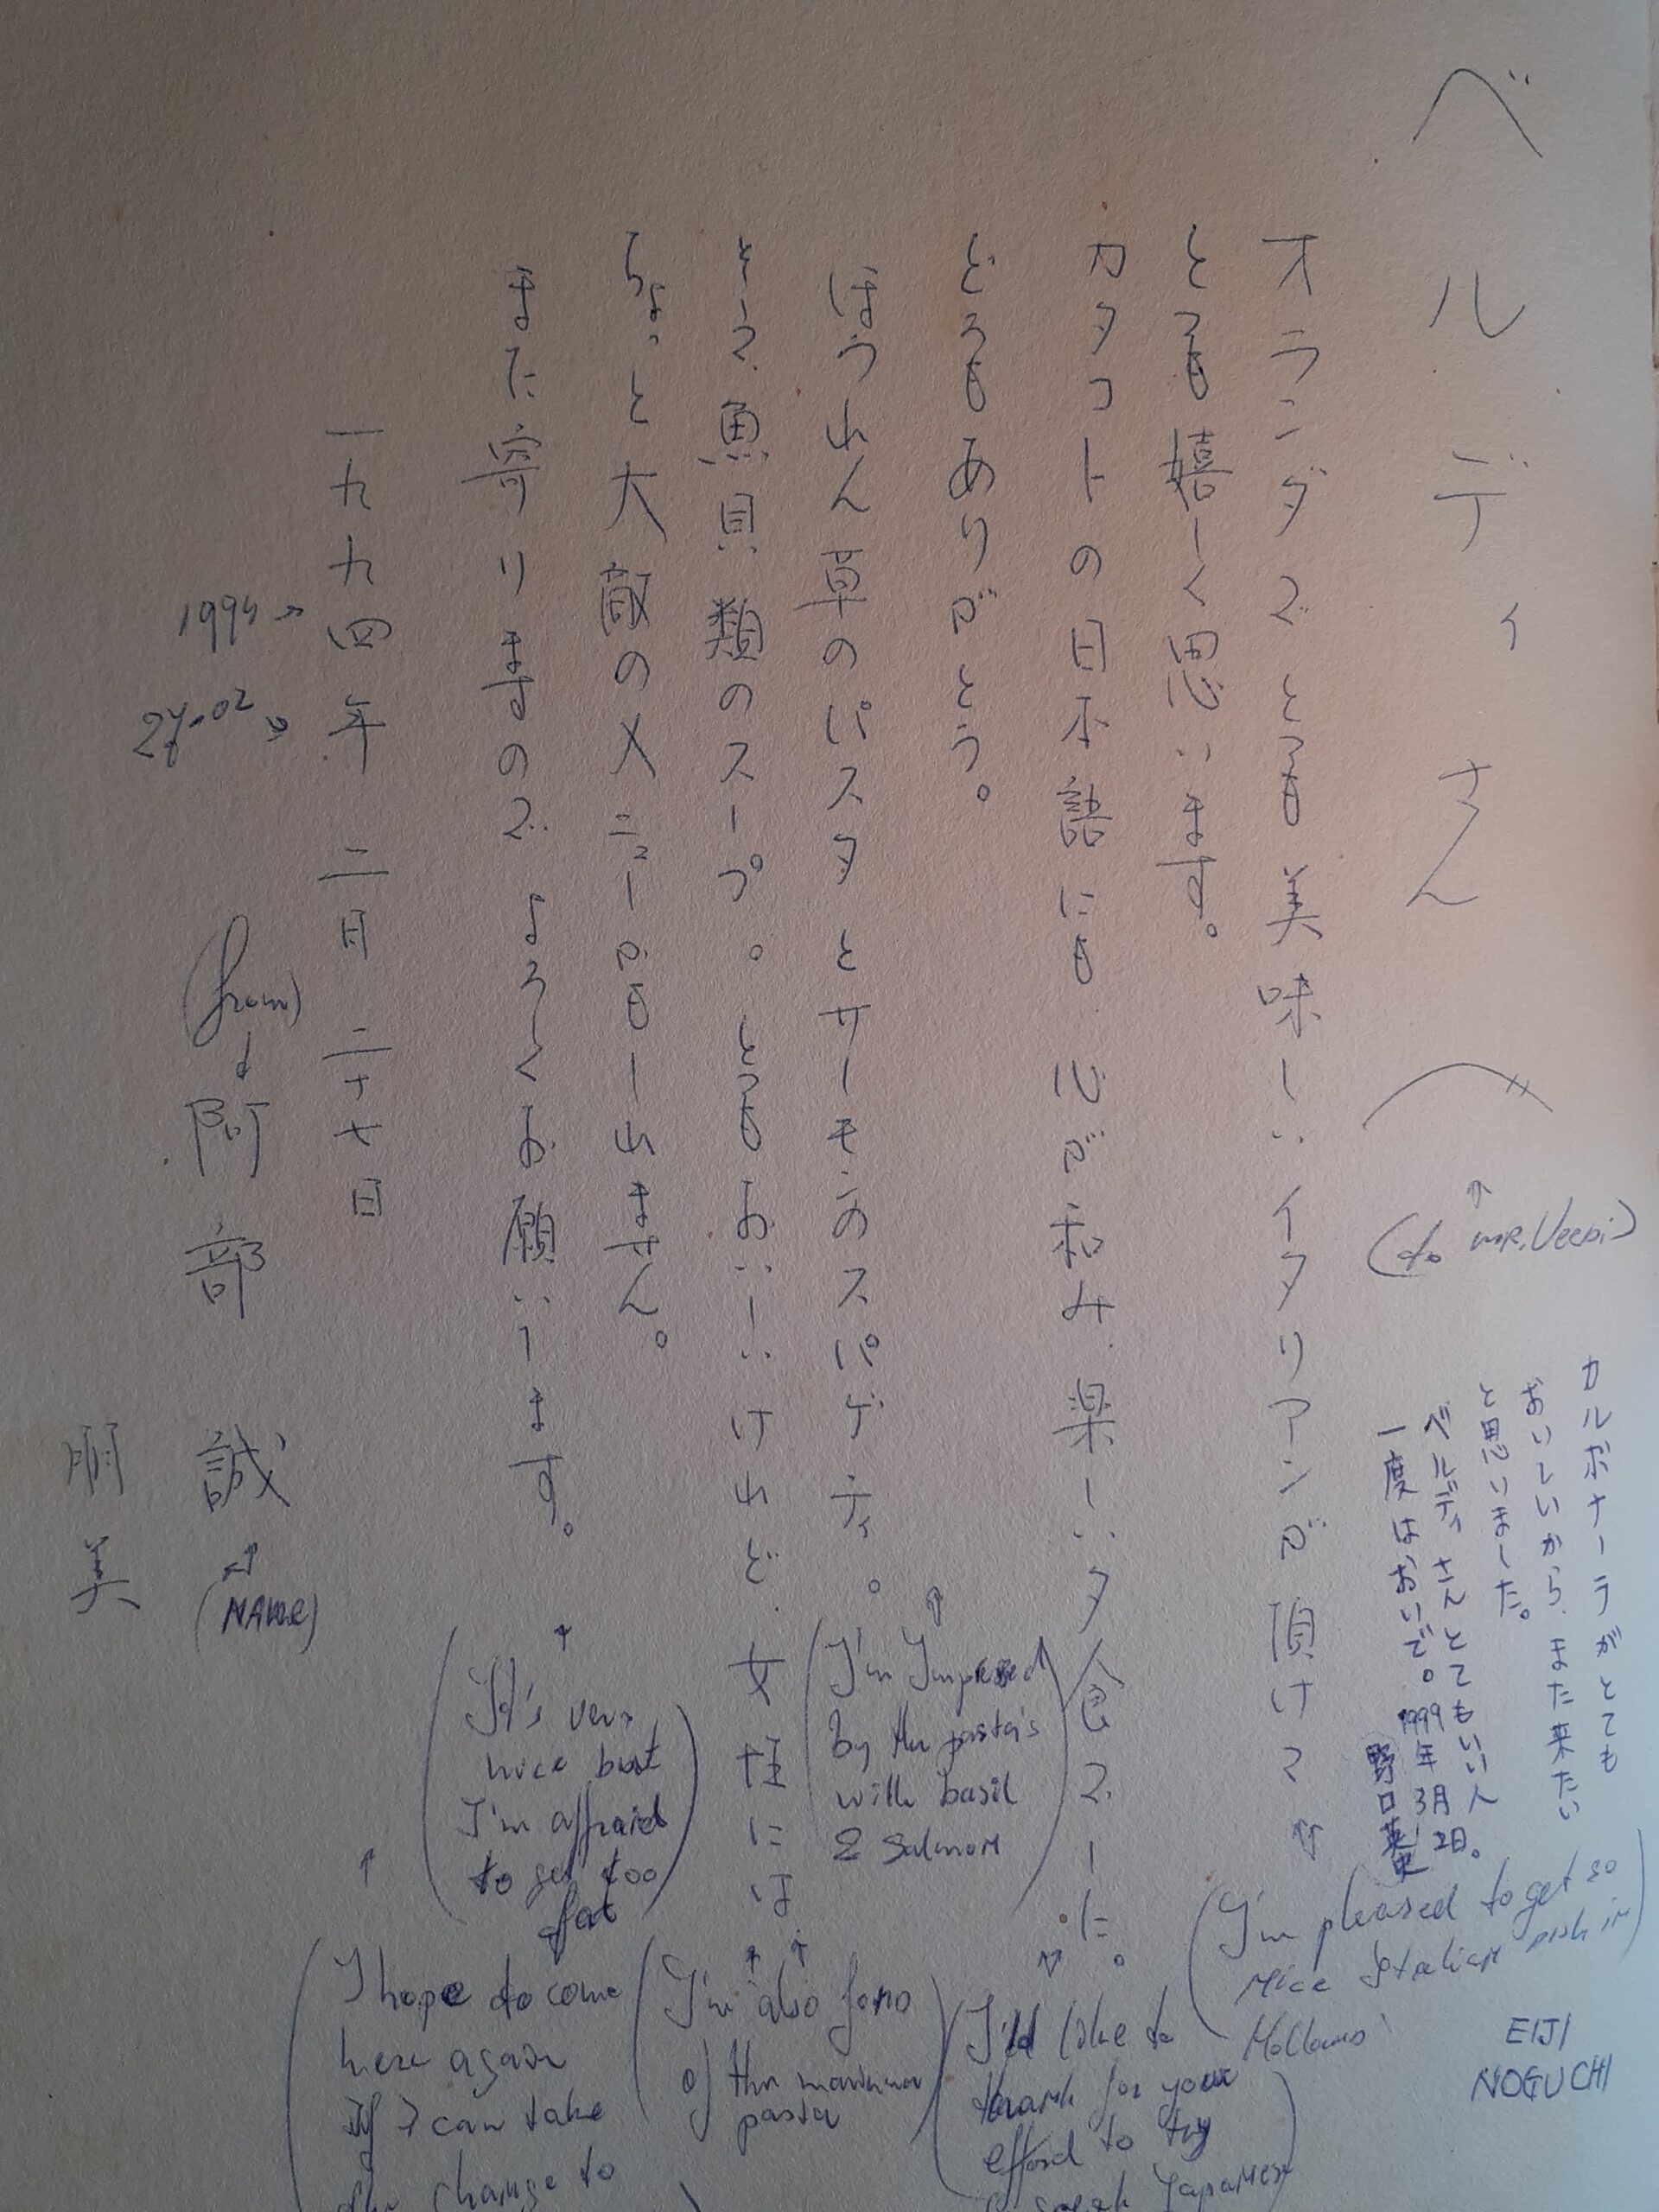 ベルディさんへ
オランダでとても美味しいイタリアンが頂けて
とても嬉しく思います。
カタコトの日本語にも心が和み、楽しい夕食でした。
どうもありがとう。
ほうれん草のパスタとサーモンのスパゲティ。
そして魚貝類のスープ。とてもおいしいけれど、女性には、
ちょっと大敵のメニューかもしれません。
また寄りますので、よろしくお願いします。
一九九四年 二月 二十七日
阿部 誠
朋美
1994 →
27-02 →
(from)
(NAME)
(to MR. Verdi)
カルボナーラがとても
おいしいから、また来たい
と思いました。
ベルディさんとてもいい人
一度はおいで。1999年3月2日。
野口英史
EIJI
NOGUCHI
(I'm pleased to get so
nice Italian dish in
Holland)
(I'ld like to
thank for your
efford to try
speak Japanese
(I'm Impressed
by the pasta's
with basil
& salmon)
(I'm also fond
of the marinara
pasta)
(It's very
nice but
I'm affraid
to get too
fat)
(I hope to come
here again
If I can take
the change to